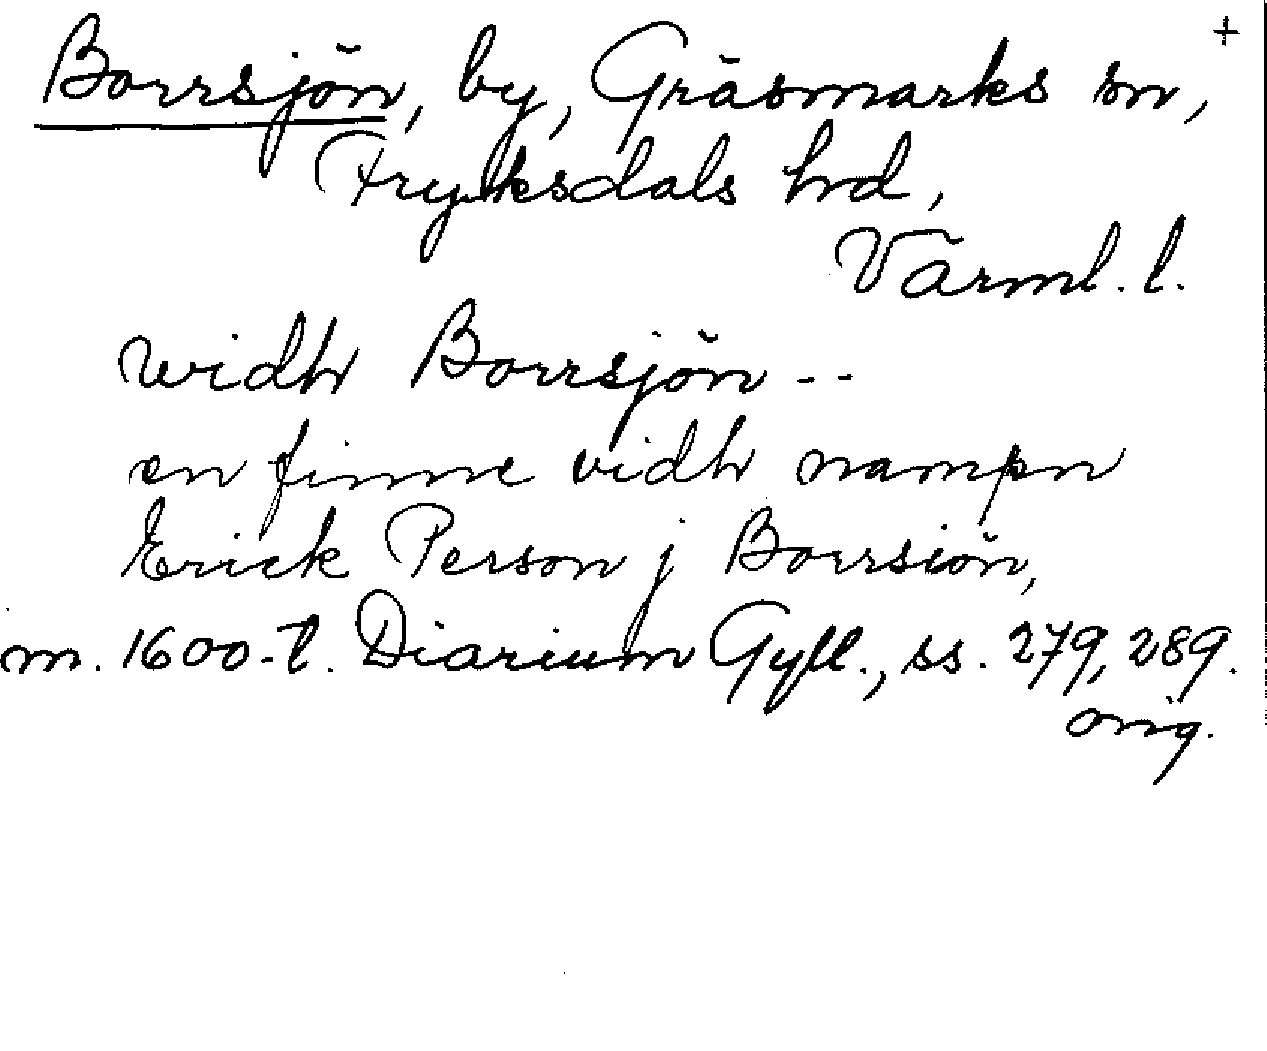 +
Borrsjön, by, Gräsmarks sn,
Fryksdals hd,
Värml. l.
widh Borrsjön --
en finne vidh nampn
Erick Person j Borrsiön,
m. 1600-t. Diarium Gyll., ss. 279, 289.
orig.